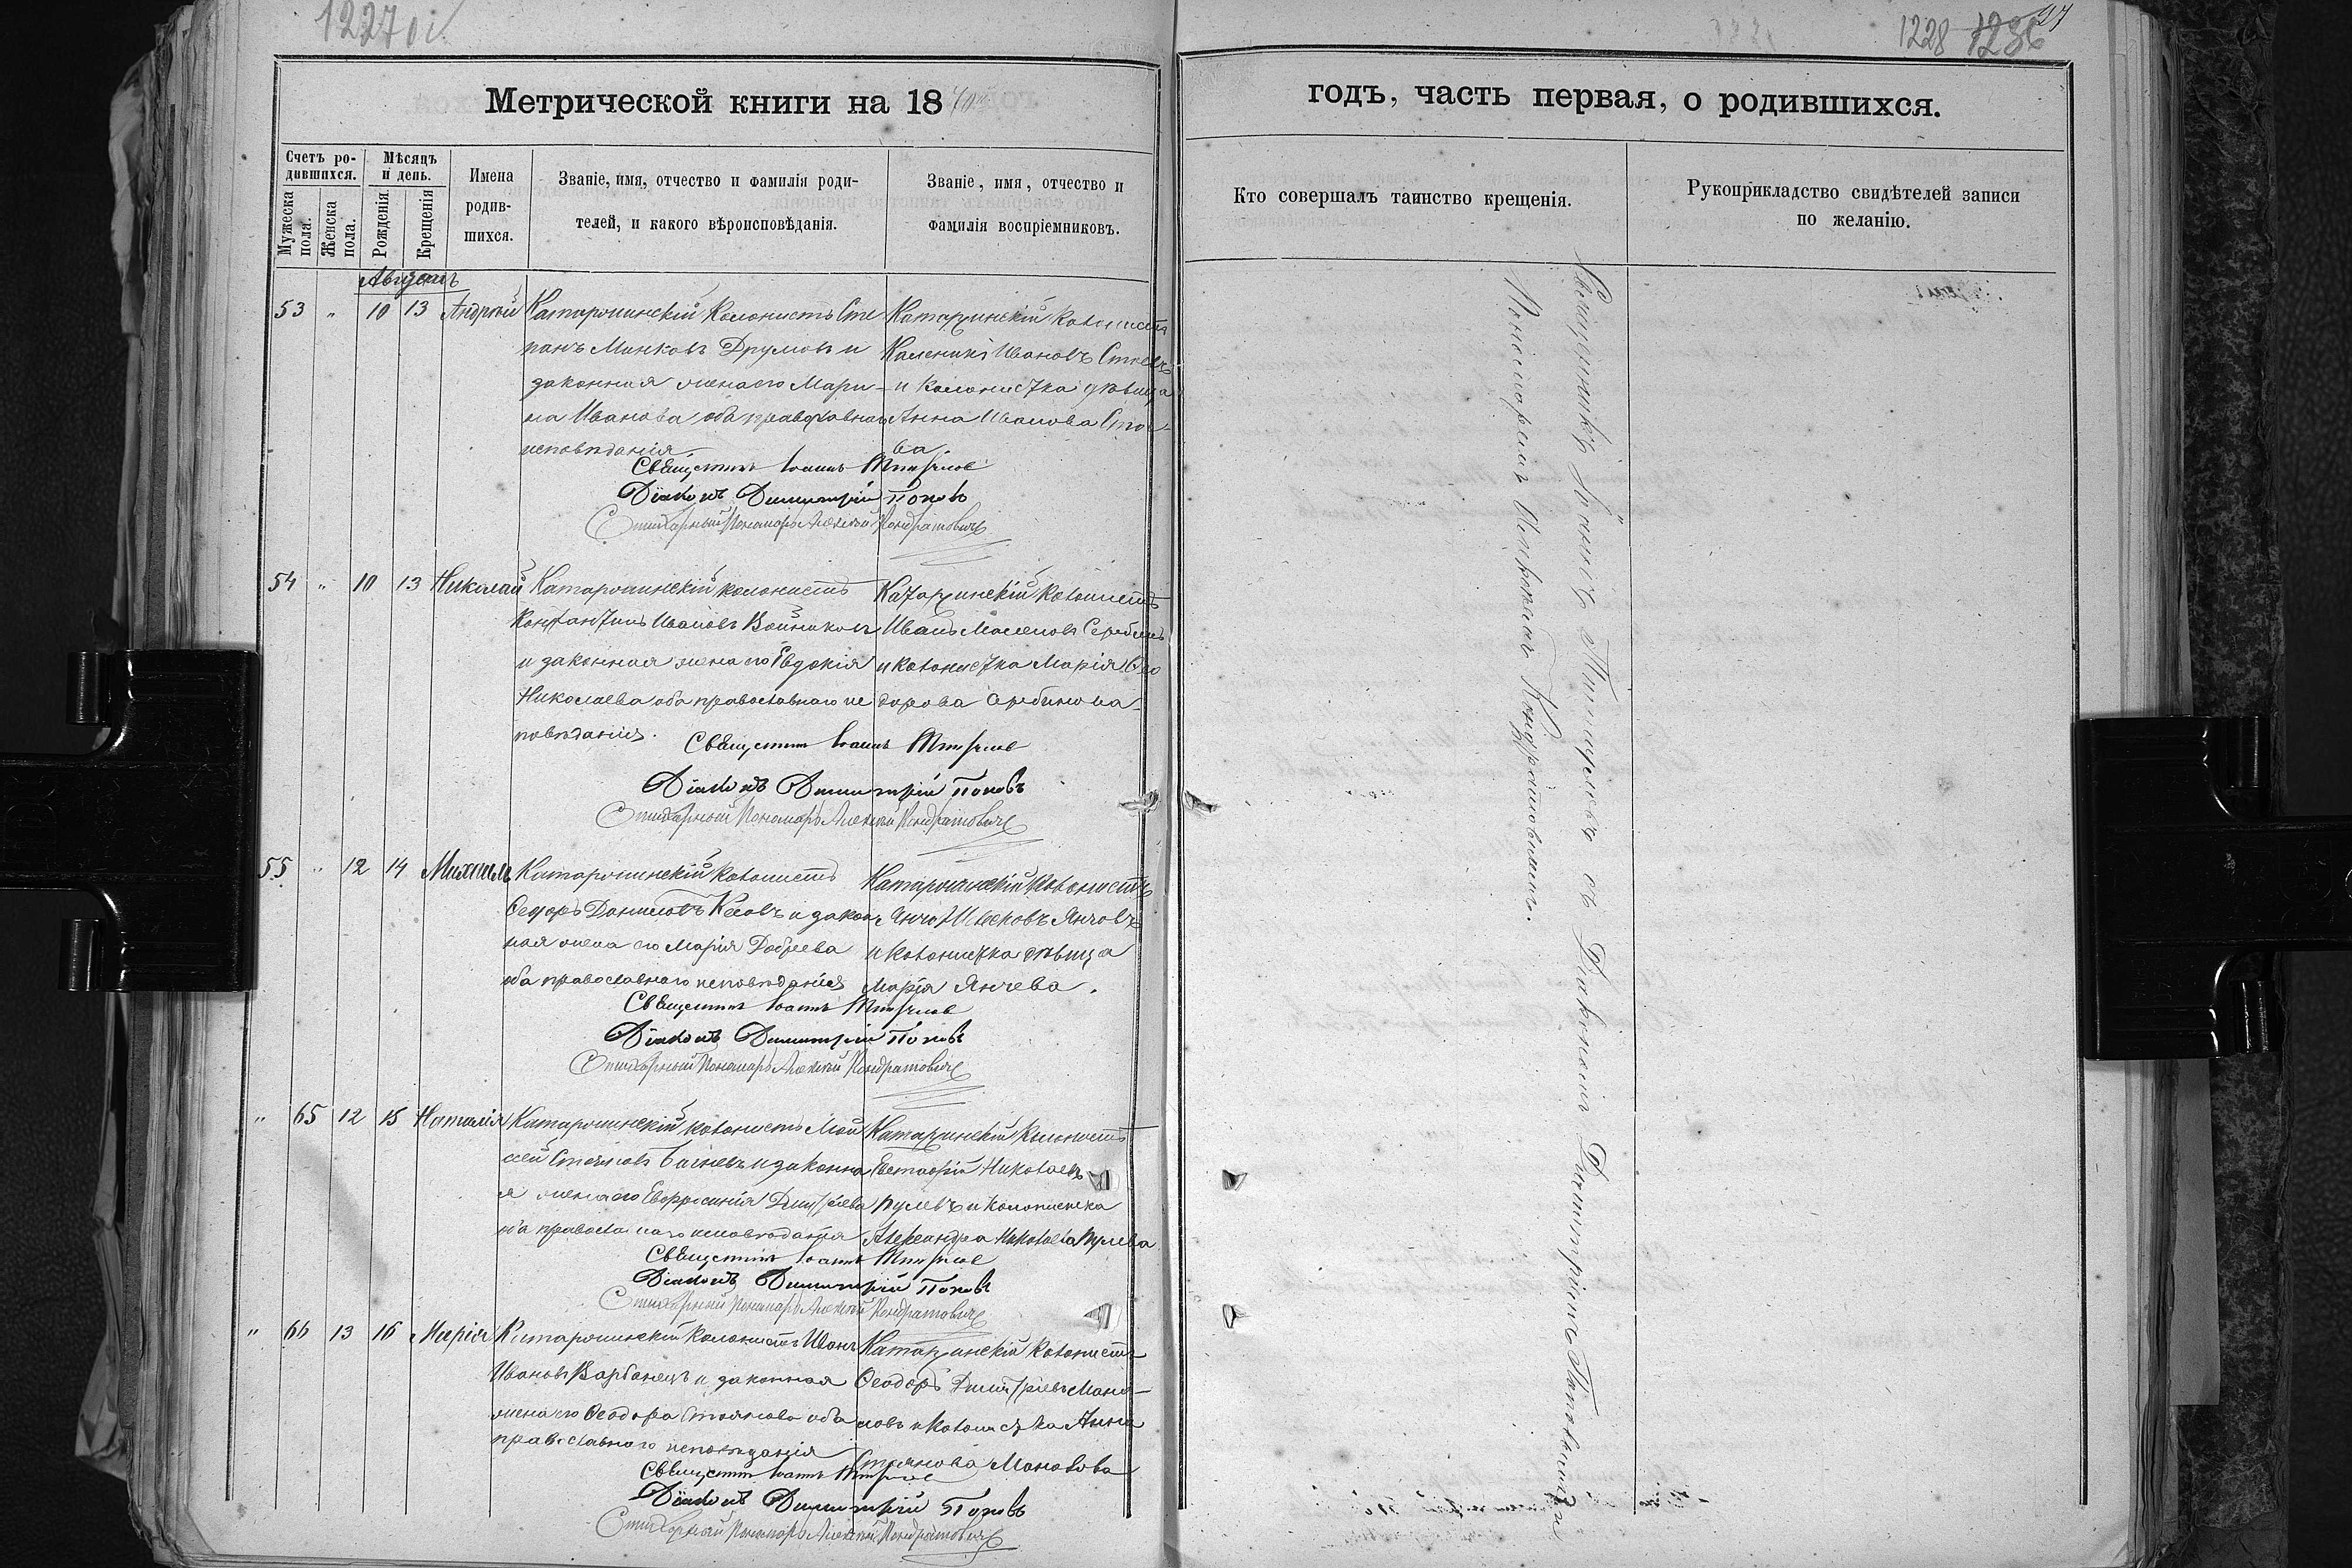 1227 об.
1228 1236 27
Метрической книги на 18
годъ, часть первая, о родившихся.
Счетъ ро-
дившихся.
Мужеска
пола.
Женска
пола.
Мѣсяцъ
и день.
Рожденія
Крещенія
Имена
родив-
шихся.
Званіе, имя, отчество и фамилія роди-
телей, и какого вѣроисповѣданія.
Званіе, имя, отчество и
фамилія воспріемниковъ.
Кто совершалъ таинство крещенія.
Рукоприкладство свидѣтелей записи
по желанію.
Августъ
53 " 10 13 Андрей
Катаржинскій колонистъ Сте
панъ Минковъ Друмовъ и
законная жена его Мари-
на Иванова оба православнаго
исповѣданія.
Катаржинскій колонистъ
Калиникъ Ивановъ Стоевъ
и колонистка дѣвица
Анна Иванова Стое-
ва
Священникъ Іоаннъ
Діаконъ Димитрій Поповъ
Стихарный Пономарь Алексѣй Кондратовичъ
54 " 10 13 Николай
Катаржинскій колонистъ
Константинъ Ивановъ Войниковъ
и законная жена его Евдокія
Николаева оба православнаго ис
повѣданія.
Катаржинскій колонистъ
Иванъ Сербиновъ
и колонистка Марія Ѳео
дорова Сербинова
Священникъ Іоаннъ
Діаконъ Димитрій Поповъ
Стихарный Пономарь Алексѣй Кондратовичъ
55 " 12 14 Михаилъ
Катаржинскій колонистъ
Ѳеодоръ Даниловъ и закон
ная жена его Марія Добрева
оба православнаго исповѣданія
Катаржинскій колонистъ
Янчо Янчовъ
и колонистка дѣвица
Марія Янчева.
Священникъ Іоаннъ
Діаконъ Димитрій Поповъ
Стихарный Пономарь Алексѣй Кондратовичъ
" 65 12 15 Наталія
Катаржинскій колонистъ Мои
сей Стояновъ и законна
я жена его Евфросинія Димитріева
оба православнаго исповѣданія
Катаржинскій колонистъ
Евстафій Николаевъ
Пулевъ и колонистка
Александра Николаева Пулева
Священникъ Іоаннъ
Діаконъ Димитрій Поповъ
Стихарный Пономарь Алексѣй Кондратовичъ
" 66 13 16 Марія
Катаржинскій колонистъ Иванъ
Ивановъ Варбанецъ и законная
жена его Ѳеодора Стоянова оба
православнаго исповѣданія
Катаржинскій колонистъ
Ѳеодоръ Димитріевъ Мано-
ловъ и колонистка Анна
Стоянова Манолова
Священникъ Іоаннъ
Діаконъ Димитрій Поповъ
Стихарный Пономарь Алексѣй Кондратовичъ
Священникъ Іоаннъ съ Діакономъ Димитріемъ Поповымъ и
Пономаремъ Алексѣемъ Кондратовичемъ.